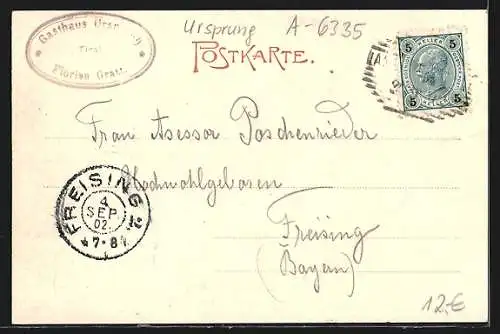 Ursprung A-6335
Gasthaus Ursprung
Tirol
Florian
POSTKARTE.
5 HELLER 5
5 5
Frau Assessor Poschenrieder
Hochwohlgeboren
FREISING
4
SEP.
02.
7-8
Freising
(Bayern)
12,-€